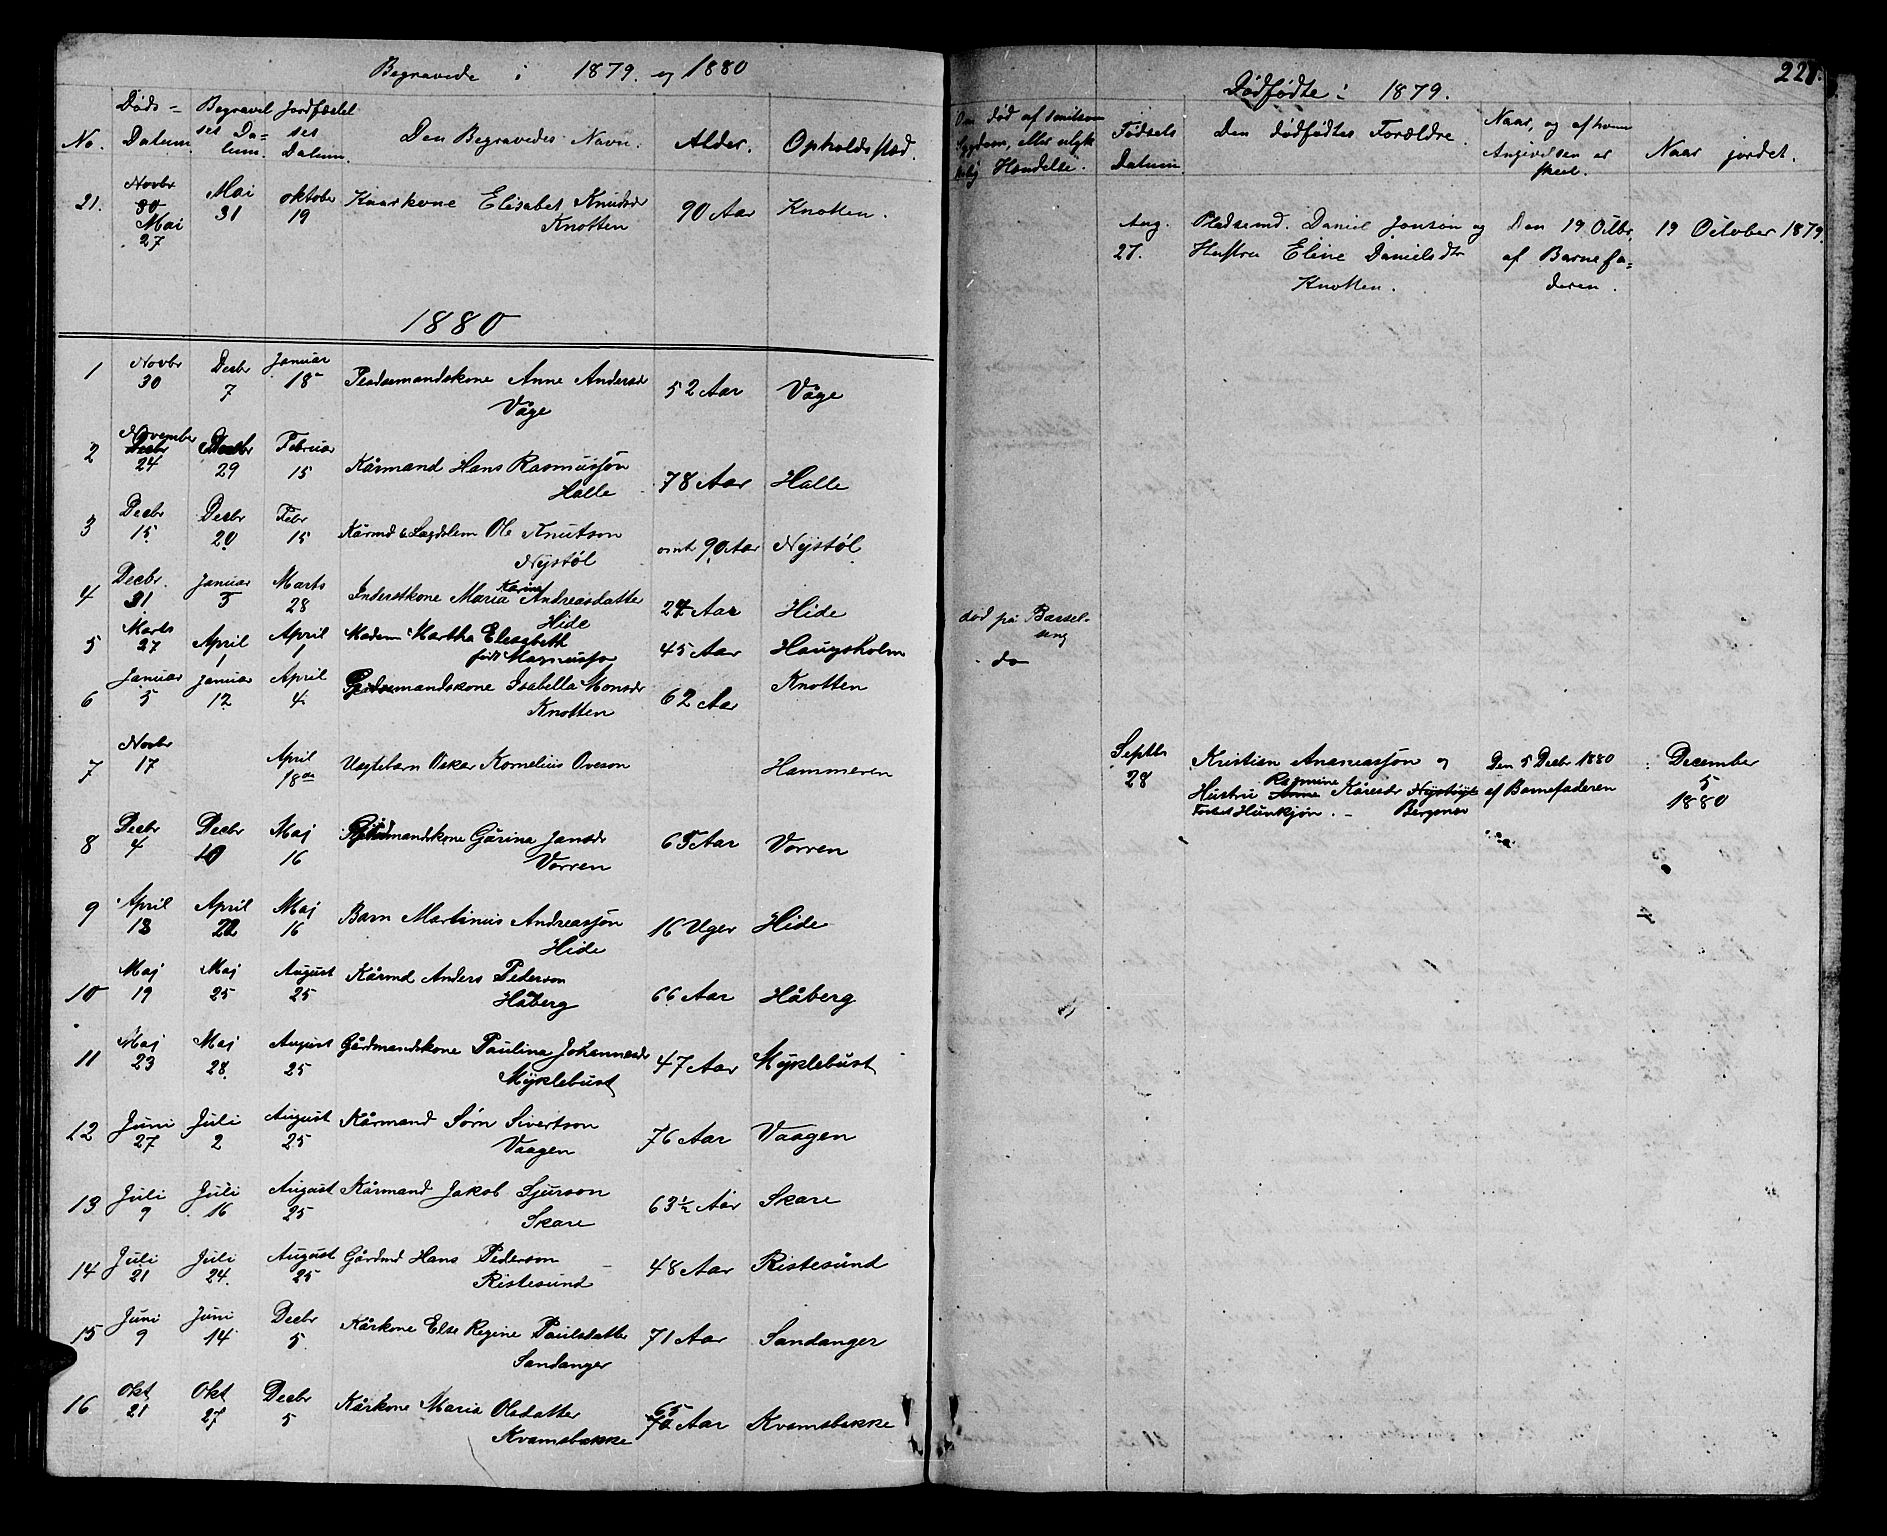 Begravede i 1879. og 1880
No. Døds-Datum. Begravelses Datum. Jordfæstelses Datum. Den Begravedes Navn. Alder. Opholdssted.
21. Novbr 30 Mai 27 Mai 31 oktober 19 Kaarkone Elisabet Knudsdr 90 Aar Knotten.
Knotten
1880
1 Novbr 30 Decbr 7 Januar 18 Pladsemandskone Anne Andersdr 52 Aar Våge
Våge
2 November Decbr 24 Decbr 29 Februar 15 Kårmand Hans Rasmussøn 78 Aar Halle
Halle
3 Decbr 15 Decbr 20 Febr 15 Kårmd & Lægdslem Ole Knutson omt 90 Aar Nystøl
Nystøl
4 Decbr. 31 Januar 5 Marts 28 Inderstkone Maria Karine Andreasdatter 27 Aar Hide
Hide
5 Marts 27 April 1 April 1 Madam Martha Elisabeth 45 Aar Haugsholm
født Magnussen
6 Januar 5 Januar 12 April 4 Pladsemandskone Isabella Monsdr 62 Aar Knotten
Knotten
7 Novbr 17 April 18de Uægtebarn Oskar Kornelius Oveson Hammeren
8 Decbr 4 Decbr 10 Maj 16 Gårdmandskone Gårina Jansdr 65 Aar Vorren
Vorren
9 April 13 April 22 Maj 16 Barn Martinus Andreassøn 16 Uger Hide
Hide
10 Maj 19 Maj 25 August 25 Kårmd Anders Pederson 66 Aar Håberg
Håberg
11 Maj 23 Maj 28 August 25 Gårdmandskone Paulina Johannesdr 47 Aar Myklebust
Myklebust
12 Juni 27 Juli 2 August 25 Kårmand Sørn Sivertson 76 Aar Vaagen
Vaagen
13 Juli 9 Juli 16 August 25 Kårmand Jakob Sjurson 63½ Aar Skare
Skare
14 Juli 21 Juli 24 August 25 Gårdmd Hans Pederson 48 Aar Ristesund
Ristesund
15 Juni 9 Juni 14 Decbr 5 Kårkone Else Regine Paulsdatter 71 Aar Sandanger
Sandanger
16 Okt 21 Okt 27 Decbr 5 Kårkone Maria Olsdatter 65 70 Aar Kvamsbakke
Kvamsbakke
227.
Dødfødte i 1879.
Om død af smitsom
Sygdom, eller ulyk-
kelig Hændelse.
Fødsels Datum Den dødfødtes Forældre. Naar, og af hvem Angivelsen er skeet. Naar jordet.
Aug. 27. Pladsemd. Daniel Jonsøn og Den 19 Octbr. 19 October 1879.
Hustru Eline Danielsdtr af Barnefa-
Knotten. deren.
død på Barsel-
seng
do
Septbr 28 Kristian Andreassøn og Den 5 Decbr 1880 December
Hustru Rasmine Anne Kåresdr af Barnefaderen 5
Foster Hunkjøn. 1880